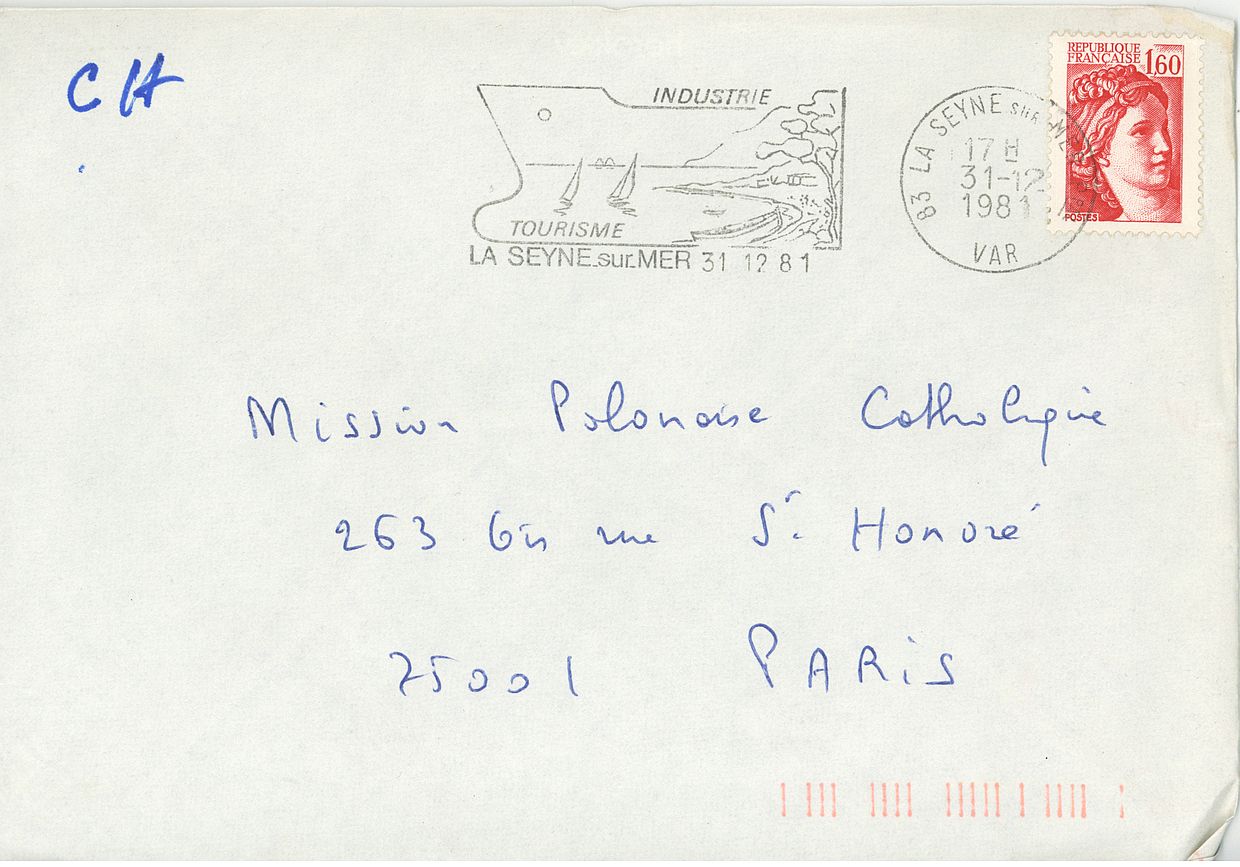 CH
INDUSTRIE
TOURISME
LA SEYNE-sur-MER 31 12 81
83 LA SEYNE sur MER
17 H
31-12
1981
VAR
REPUBLIQUE
FRANCAISE 1,60
POSTES
Mission Polonaise Catholique
263 bis rue St Honoré
75001 PARiS